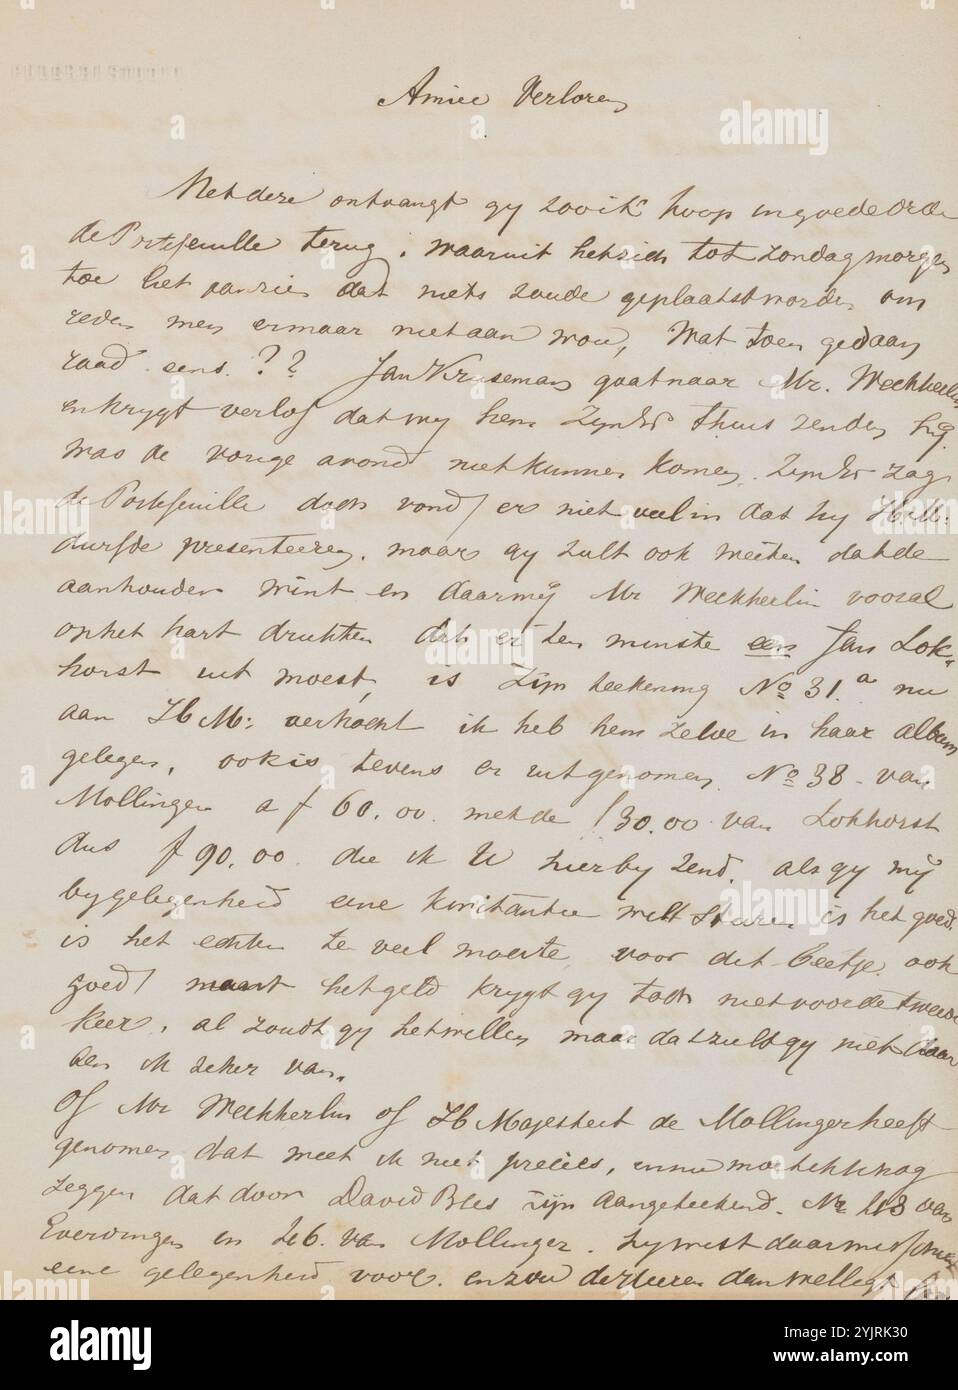 Amice Verloren
Met deze ontvangt gy zoo ik hoop in goede orde
de Portefeuille terug, waaruit het zich tot Zondag morgen
toe liet aanzien dat niets zoude geplaatst worden om
reden men er maar niet aan wou, Wat toen gedaan
raad eens. ?? Jan Kruseman gaat naar Mr. Weckherlin
en krygt verlof dat wy hem zyn Ed thuis zenden hy
was de vorige avond niet kunnen komen. Zyn Ed zag
de Portefeuille doch vond er niet veel in dat hy H.M:
durfde presenteeren, maar gy zult ook weeten dat de
aanhouder wint en daar wy Mr Weckherlin vooral
op het hart drukten dat er ten minste een Jan Lok-
horst uit moest, is Zijn teekening No 31.a nu
aan H M: verkocht ik heb hem zelve in haar album
gelegen, ook is tevens er uitgenomen No 38 van
Mollinger a f 60,00. met de f 30.00 van Lokhorst
dus f 90.00. die ik U hierby zend. als gy mij
by gelegenheid eene kwitantie wilt sturen is het goed.
is het echter te veel moeite voor dit beetje ook
goed want het geld krygt gy toch niet voor de tweede
keer, al zoudt gy het willen maar dat zult gy niet daar
ben ik zeker van.
Of Mr Weckherlin of H Majesteit de Mollinger heeft
genomen dat weet ik niet precies,
zeggen dat door David Bles zijn aangeteekend. No 113 van
Everdingen en 26. van Mollinger. hy wist daar misschien
eene gelegenheid voor. en zou
alamy
alamy
Image ID: 2YJRK30
www.alamy.com